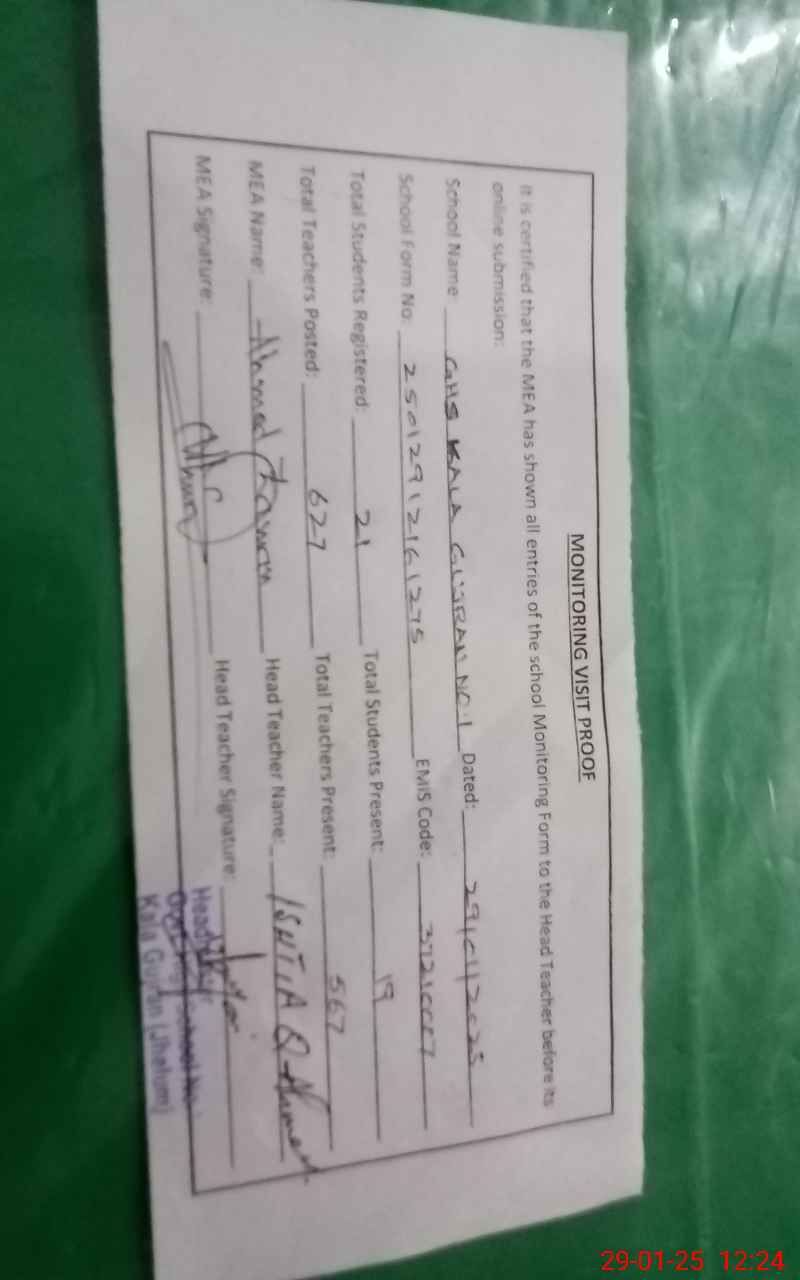 MONITORING VISIT PROOF
It is certified that the MEA has shown all entries of the school Monitoring Form to the Head Teacher before its
online submission:
School Name GHS KALA GUJRAN NO:1 Dated: 29/01/2025
School Form No: 25012912161275 EMIS Code: 37210007
Total Students Registered: 21 Total Students Present: 19
Total Teachers Posted: 627 Total Teachers Present: 567
MEA Name: Ahmed Head Teacher Name: ISHTIAQ Ahmed
MEA Signature: Head Teacher Signature:
School No
Kala Gujran (Jhelum)
29-01-25 12:24